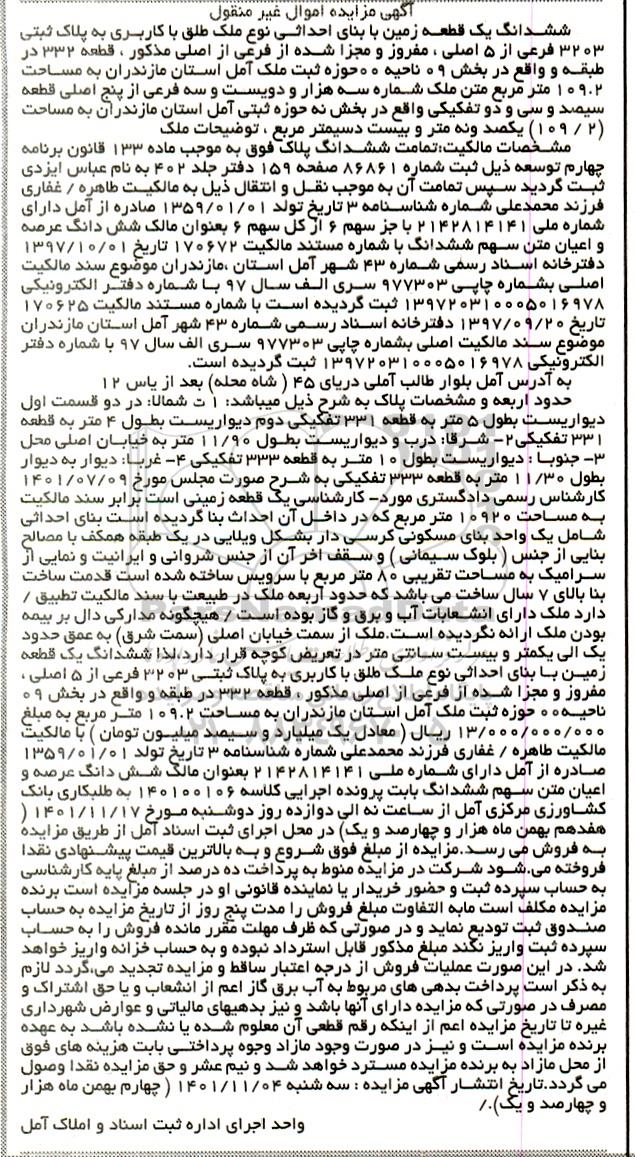 آگهی مزایده اموال غیر منقول
ششدانگ یک قطعه زمین با بنای احداثی نوع ملک طلق با کاربری به پلاک ثبتی
۳۲۰۳ فرعی از ۵ اصلی ، مفروز و مجزا شده از فرعی از اصلی مذکور ، قطعه ۳۳۲ در
طبقه و واقع در بخش ۰۹ ناحیه ۰۰حوزه ثبت ملک آمل استان مازندران به مساحت
۱۰۹.۲ متر مربع متن ملک شماره سه هزار و دویست و سه فرعی از پنج اصلی قطعه
سیصد و سی و دو تفکیکی واقع در بخش نه حوزه ثبتی آمل استان مازندران به مساحت
(۲ / ۱۰۹) یکصد ونه متر و بیست دسیمتر مربع ، توضیحات ملک
مشخصات مالکیت:تمامت ششدانگ پلاک فوق به موجب ماده ۱۳۳ قانون برنامه
چهارم توسعه ذیل ثبت شماره ۸۶۸۶۱ صفحه ۱۵۹ دفتر جلد ۴۰۲ به نام عباس ایزدی
ثبت گردید سپس تمامت آن به موجب نقل و انتقال ذیل به مالکیت طاهره / غفاری
فرزند محمدعلی شماره شناسنامه ۳ تاریخ تولد ۱۳۵۹/۰۱/۰۱ صادره از آمل دارای
شماره ملی ۲۱۴۲۸۱۴۱۴۱ با جز سهم ۶ از کل سهم ۶ بعنوان مالک شش دانگ عرصه
و اعیان متن سهم ششدانگ با شماره مستند مالکیت ۱۷۰۶۷۲ تاریخ ۱۳۹۷/۱۰/۰۱
دفترخانه اسناد رسمی شماره ۴۳ شهر آمل استان ،مازندران موضوع سند مالکیت
اصلی بشماره چاپی ۹۷۷۳۰۳ سری الف سال ۹۷ با شماره دفتر الکترونیکی
۱۳۹۷۲۰۳۱۰۰۰۵۰۱۶۹۷۸ ثبت گردیده است با شماره مستند مالکیت ۱۷۰۶۲۵
تاریخ ۱۳۹۷/۰۹/۲۰ دفترخانه اسناد رسمی شماره ۴۳ شهر آمل استان مازندران
موضوع سند مالکیت اصلی بشماره چاپی ۹۷۷۳۰۳ سری الف سال ۹۷ با شماره دفتر
الکترونیکی ۱۳۹۷۲۰۳۱۰۰۰۵۰۱۶۹۷۸ ثبت گردیده است.
به آدرس آمل بلوار طالب آملی دریای ۴۵ ( شاه محله) بعد از یاس ۱۲
حدود اربعه و مشخصات پلاک به شرح ذیل میباشد: ۱ ت شمالا: در دو قسمت اول
دیواریست بطول ۵۰ متر به قطعه ۳۳۱ تفکیکی دوم دیواریست بطول ۴ متر به قطعه
۳۳۱ تفکیکی۲- شرقا: درب و دیواریست بطول ۱۱/۹۰ متر به خیابان اصلی محل
۳- جنوبا : دیواریست بطول ۱۰ متر به قطعه ۳۳۳ تفکیکی ۴- غربا: دیوار به دیوار
بطول ۱۱/۳۰ متر به قطعه ۳۳۳ تفکیکی به شرح صورت مجلس مورخ ۱۴۰۱/۰۷/۰۹
کارشناس رسمی دادگستری مورد- کارشناسی یک قطعه زمینی است برابر سند مالکیت
به مساحت ۱۰۹۲۰ متر مربع که در داخل آن احداث بنا گردیده است بنای احداثی
شامل یک واحد بنای مسکونی کرسی دار بشکل ویلایی در یک طبقه همکف با مصالح
بنایی از جنس ( بلوک سیمانی ) و سقف اخر آن از جنس شروانی و ایرانیت و نمایی از
سرامیک به مساحت تقریبی ۸۰ متر مربع با سرویس ساخته شده است قدمت ساخت
بنا بالای ۷ سال ساخت می باشد که حدود اربعه ملک در طبیعت با سند مالکیت تطبیق /
دارد ملک دارای انشعابات آب و برق و گاز بوده است / هیچگونه مدارکی دال بر بیمه
بودن ملک ارائه نگردیده است.ملک از سمت خیابان اصلی (سمت شرق) به عمق حدود
یک الی یکمتر و بیست سانتی متر در تعریض کوچه قرار دارد،لذا ششدانگ یک قطعه
زمین با بنای احداثی نوع ملک طلق با کاربری به پلاک ثبتی ۳۲۰۳ فرعی از ۵ اصلی ،
مفروز و مجزا شده از فرعی از اصلی مذکور ، قطعه ۳۳۲ در طبقه و واقع در بخش ۰۹
ناحیه۰۰ حوزه ثبت ملک آمل استان مازندران به مساحت ۱۰۹.۲ متر مربع به مبلغ
۱۳/۰۰۰/۰۰۰/۰۰۰ ریال ( معادل یک میلیارد و سیصد میلیون تومان ) با مالکیت
مالکیت طاهره / غفاری فرزند محمدعلی شماره شناسنامه ۳ تاریخ تولد ۱۳۵۹/۰۱/۰۱
صادره از آمل دارای شماره ملی ۲۱۴۲۸۱۴۱۴۱ بعنوان مالک شش دانگ عرصه و
اعیان متن سهم ششدانگ بابت پرونده اجرایی کلاسه ۱۴۰۱۰۰۱۰۶ به طلبکاری بانک
کشاورزی مرکزی آمل از ساعت نه الی دوازده روز دوشنبه مورخ ۱۴۰۱/۱۱/۱۷ (
هفدهم بهمن ماه هزار و چهارصد و یک) در محل اجرای ثبت اسناد آمل از طریق مزایده
به فروش می رسد.مزایده از مبلغ فوق شروع و به بالاترین قیمت پیشنهادی نقدا
فروخته می.شود شرکت در مزایده منوط به پرداخت ده درصد از مبلغ پایه کارشناسی
به حساب سپرده ثبت و حضور خریدار یا نماینده قانونی او در جلسه مزایده است برنده
مزایده مکلف است مابه التفاوت مبلغ فروش را مدت پنج روز از تاریخ مزایده به حساب
صندوق ثبت تودیع نماید و در صورتی که ظرف مهلت مقرر مانده فروش را به حساب
سپرده ثبت واریز نکند مبلغ مذکور قابل استرداد نبوده و به حساب خزانه واریز خواهد
شد. در این صورت عملیات فروش از درجه اعتبار ساقط و مزایده تجدید می.گردد لازم
به ذکر است پرداخت بدهی های مربوط به آب برق گاز اعم از انشعاب و یا حق اشتراک و
مصرف در صورتی که مزایده دارای آنها باشد و نیز بدهیهای مالیاتی و عوارض شهرداری
غیره تا تاریخ مزایده اعم از اینکه رقم قطعی آن معلوم شده یا نشده باشد به عهده
برنده مزایده است و نیز در صورت وجود مازاد وجوه پرداختی بابت هزینه های فوق
از محل مازاد به برنده مزایده مسترد خواهد شد و نیم عشر و حق مزایده نقدا وصول
می گردد.تاریخ انتشار آگهی مزایده : سه شنبه ۱۴۰۱/۱۱/۰۴ ( چهارم بهمن ماه هزار
و چهارصد و یک)./
واحد اجرای اداره ثبت اسناد و املاک آمل